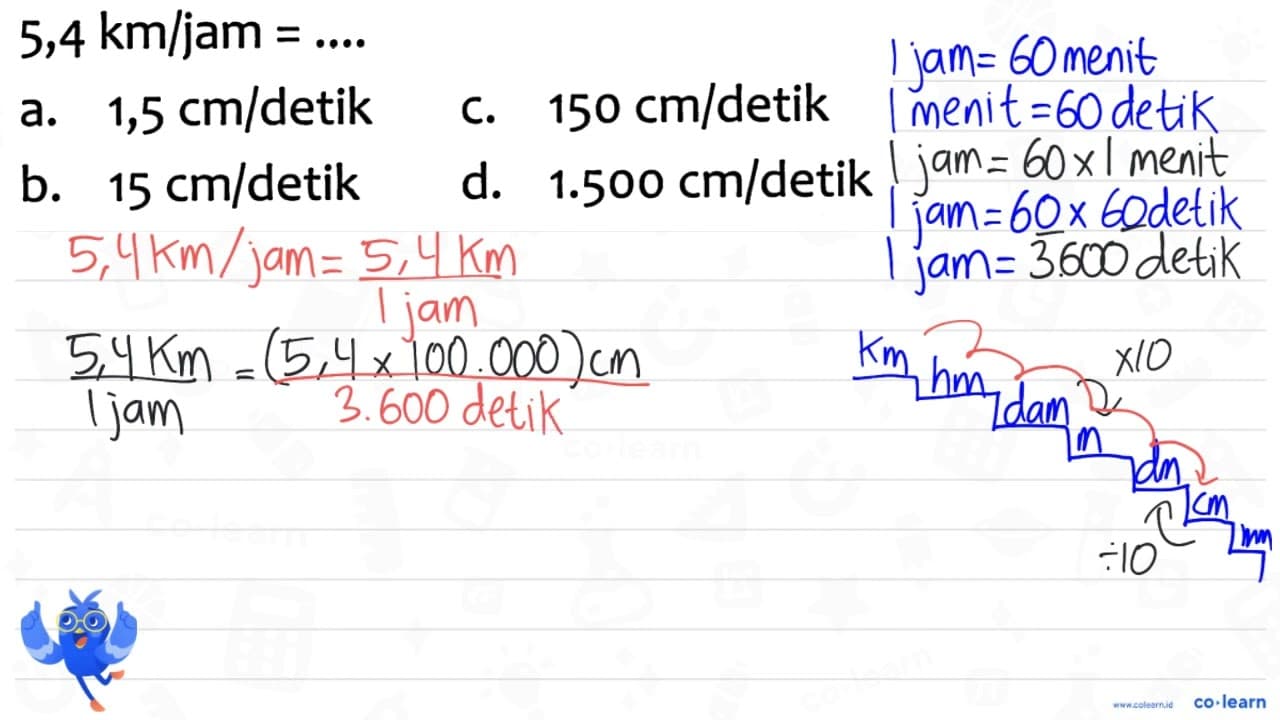 5,4 km/jam = ....
a. 1,5 cm/detik c. 150 cm/detik
b. 15 cm/detik d. 1.500 cm/detik
1 jam = 60 menit
1 menit = 60 detik
1 jam = 60 x 1 menit
1 jam = 60 x 60 detik
1 jam = 3.600 detik
5,4 Km/jam = 5,4 Km
1 jam
5,4 Km = (5,4 x 100.000) cm
1 jam 3.600 detik
km
hm
dam
m
dm
cm
mm
x10
÷10
co·learn
www.colearn.id co·learn